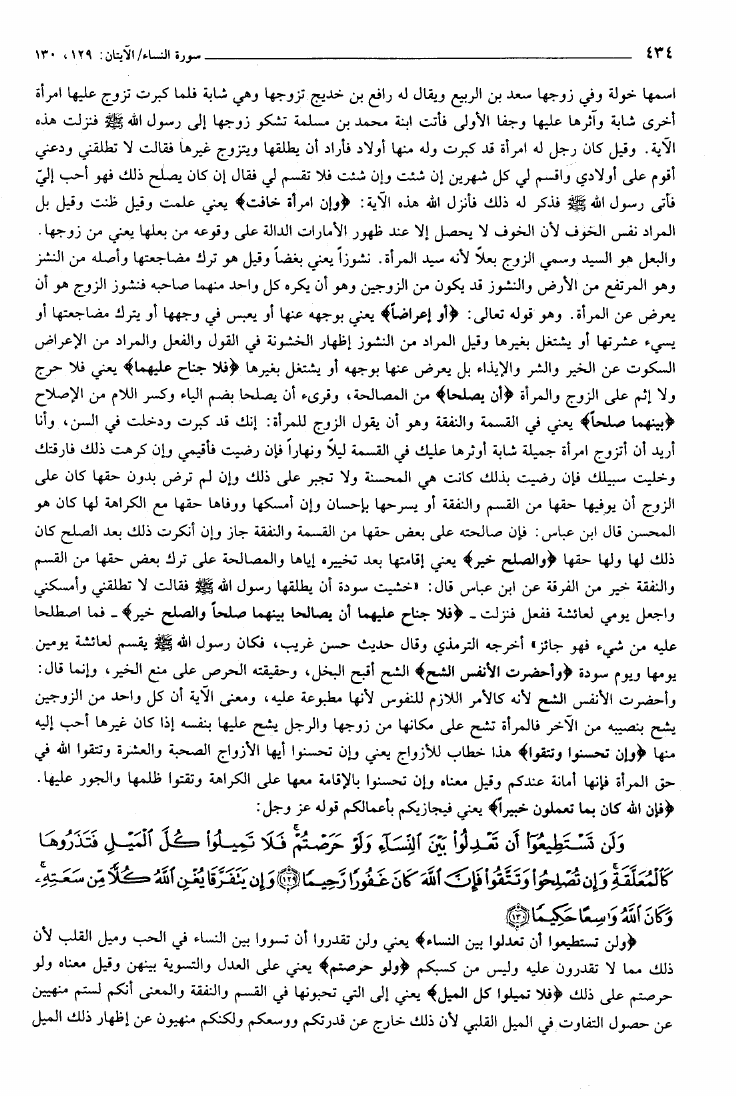 ٤٣٤ سورة النساء/ الآيتان: ١٢٩ ، ١٣٠
اسمها خولة وفي زوجها سعد بن الربيع ويقال له رافع بن خديج تزوجها وهي شابة فلما كبرت تزوج عليها امرأة
أخرى شابة وآثرها عليها وجفا الأولى فأتت ابنة محمد بن مسلمة تشكو زوجها إلى رسول الله ﷺ فنزلت هذه
الآية. وقيل كان رجل له امرأة قد كبرت وله منها أولاد فأراد أن يطلقها ويتزوج غيرها فقالت لا تطلقني ودعني
أقوم على أولادي واقسم لي كل شهرين إن شئت وإن شئت فلا تقسم لي فقال إن كان يصلح ذلك فهو أحب إليّ
فأتى رسول الله ﷺ فذكر له ذلك فأنزل الله هذه الآية: ﴿وإن امرأة خافت﴾ يعني علمت وقيل ظنت وقيل بل
المراد نفس الخوف لأن الخوف لا يحصل إلا عند ظهور الأمارات الدالة على وقوعه من بعلها يعني من زوجها.
والبعل هو السيد وسمي الزوج بعلاً لأنه سيد المرأة. نشوزاً يعني بغضاً وقيل هو ترك مضاجعتها وأصله من النشز
وهو المرتفع من الأرض والنشوز قد يكون من الزوجين وهو أن يكره كل واحد منهما صاحبه فنشوز الزوج هو أن
يعرض عن المرأة. وهو قوله تعالى: ﴿أو إعراضاً﴾ يعني بوجهه عنها أو يعبس في وجهها أو يترك مضاجعتها أو
يسيء عشرتها أو يشتغل بغيرها وقيل المراد من النشوز إظهار الخشونة في القول والفعل والمراد من الإعراض
السكوت عن الخير والشر والإيذاء بل يعرض عنها بوجهه أو يشتغل بغيرها ﴿فلا جناح عليهما﴾ يعني فلا حرج
ولا إثم على الزوج والمرأة ﴿أن يصلحا﴾ من المصالحة، وقرىء أن يصلحا بضم الياء وكسر اللام من الإصلاح
﴿بينهما صلحاً﴾ يعني في القسمة والنفقة وهو أن يقول الزوج للمرأة: إنك قد كبرت ودخلت في السن، وأنا
أريد أن أتزوج امرأة جميلة شابة أوثرها عليك في القسمة ليلاً ونهاراً فإن رضيت فأقيمي وإن كرهت ذلك فارقتك
وخليت سبيلك فإن رضيت بذلك كانت هي المحسنة ولا تجبر على ذلك وإن لم ترض بدون حقها كان على
الزوج أن يوفيها حقها من القسم والنفقة أو يسرحها بإحسان وإن أمسكها ووفاها حقها مع الكراهة لها كان هو
المحسن قال ابن عباس: فإن صالحته على بعض حقها من القسمة والنفقة جاز وإن أنكرت ذلك بعد الصلح كان
ذلك لها ولها حقها ﴿والصلح خير﴾ يعني إقامتها بعد تخييره إياها والمصالحة على ترك بعض حقها من القسم
والنفقة خير من الفرقة عن ابن عباس قال: «خشيت سودة أن يطلقها رسول الله ﷺ فقالت لا تطلقني وأمسكني
واجعل يومي لعائشة ففعل فنزلت ـ ﴿فلا جناح عليهما أن يصالحا بينهما صلحاً والصلح خير﴾ ـ فما اصطلحا
عليه من شيء فهو جائز» أخرجه الترمذي وقال حديث حسن غريب، فكان رسول الله ﷺ يقسم لعائشة يومين
يومها ويوم سودة ﴿وأحضرت الأنفس الشح﴾ الشح أقبح البخل، وحقيقته الحرص على منع الخير، وإنما قال:
وأحضرت الأنفس الشح لأنه كالأمر اللازم للنفوس لأنها مطبوعة عليه، ومعنى الآية أن كل واحد من الزوجين
يشح بنصيبه من الآخر فالمرأة تشح على مكانها من زوجها والرجل يشح عليها بنفسه إذا كان غيرها أحب إليه
منها ﴿وإن تحسنوا وتتقوا﴾ هذا خطاب للأزواج يعني وإن تحسنوا أيها الأزواج الصحبة والعشرة وتتقوا الله في
حق المرأة فإنها أمانة عندكم وقيل معناه وإن تحسنوا بالإقامة معها على الكراهة وتقتوا ظلمها والجور عليها.
﴿فإن الله كان بما تعملون خبيراً﴾ يعني فيجازيكم بأعمالكم قوله عز وجل:
وَلَن تَسْتَطِيعُوٓا۟ أَن تَعْدِلُوا۟ بَيْنَ ٱلنِّسَآءِ وَلَوْ حَرَصْتُمْ ۖ فَلَا تَمِيلُوا۟ كُلَّ ٱلْمَيْلِ فَتَذَرُوهَا
كَٱلْمُعَلَّقَةِ ۚ وَإِن تُصْلِحُوا۟ وَتَتَّقُوا۟ فَإِنَّ ٱللَّهَ كَانَ غَفُورًا رَّحِيمًا ﴿١٢٩﴾ وَإِن يَتَفَرَّقَا يُغْنِ ٱللَّهُ كُلًّا مِّن سَعَتِهِۦ ۚ
وَكَانَ ٱللَّهُ وَٰسِعًا حَكِيمًا ﴿١٣٠﴾
﴿ولن تستطيعوا أن تعدلوا بين النساء﴾ يعني ولن تقدروا أن تسووا بين النساء في الحب وميل القلب لأن
ذلك مما لا تقدرون عليه وليس من كسبكم ﴿ولو حرصتم﴾ يعني على العدل والتسوية بينهن وقيل معناه ولو
حرصتم على ذلك ﴿فلا تميلوا كل الميل﴾ يعني إلى التي تحبونها في القسم والنفقة والمعنى أنكم لستم منهيين
عن حصول التفاوت في الميل القلبي لأن ذلك خارج عن قدرتكم ووسعكم ولكنكم منهيون عن إظهار ذلك الميل